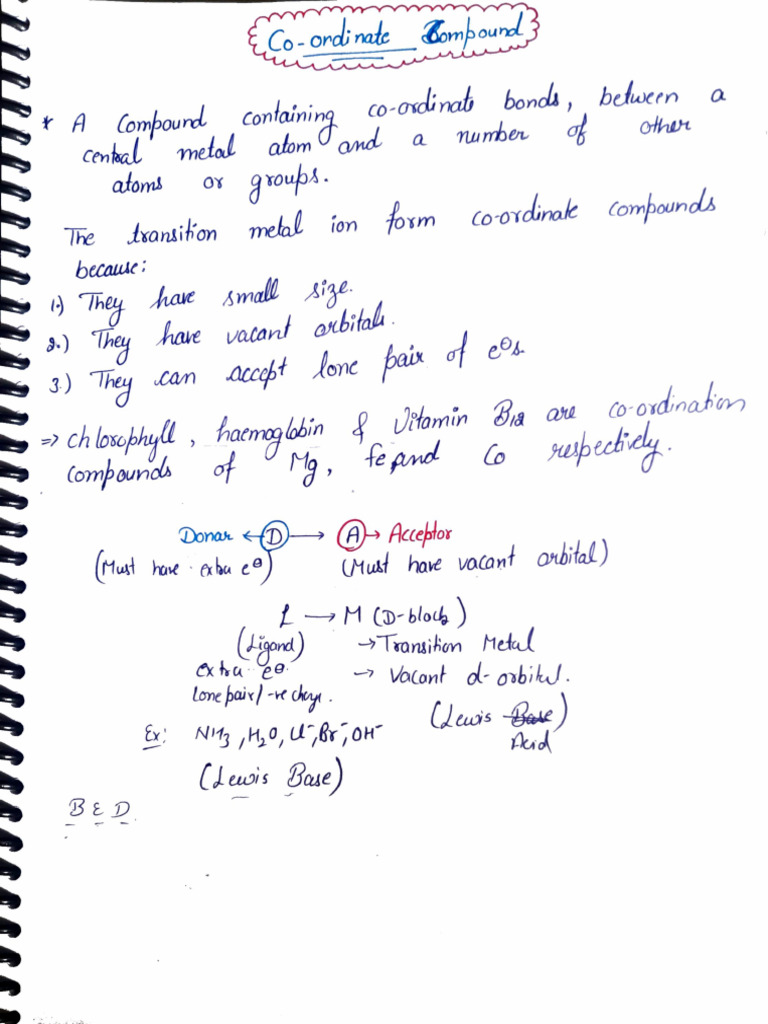 Co-ordinate Compound
* A Compound containing co-ordinate bonds, between a
central metal atom and a number of other
atoms or groups.
The transition metal ion form co-ordinate compounds
because:
1.) They have small size.
2.) They have vacant orbitals.
3.) They can accept lone pair of e⊖s.
⇒ chlorophyll, haemoglobin & Vitamin B12 are co-ordination
compounds of Mg, fe and Co respectively.
Donar ← D → A → Acceptor
(Must have extra e⊖) (Must have vacant orbital)
L → M (D-block)
(Ligand) → Transition Metal
extra e⊖ → Vacant d-orbital.
lone pair/-ve charge. (Lewis Base)
Acid
Ex: NH3, H2O, Cl⁻, Br⁻, OH⁻
(Lewis Base)
B E D